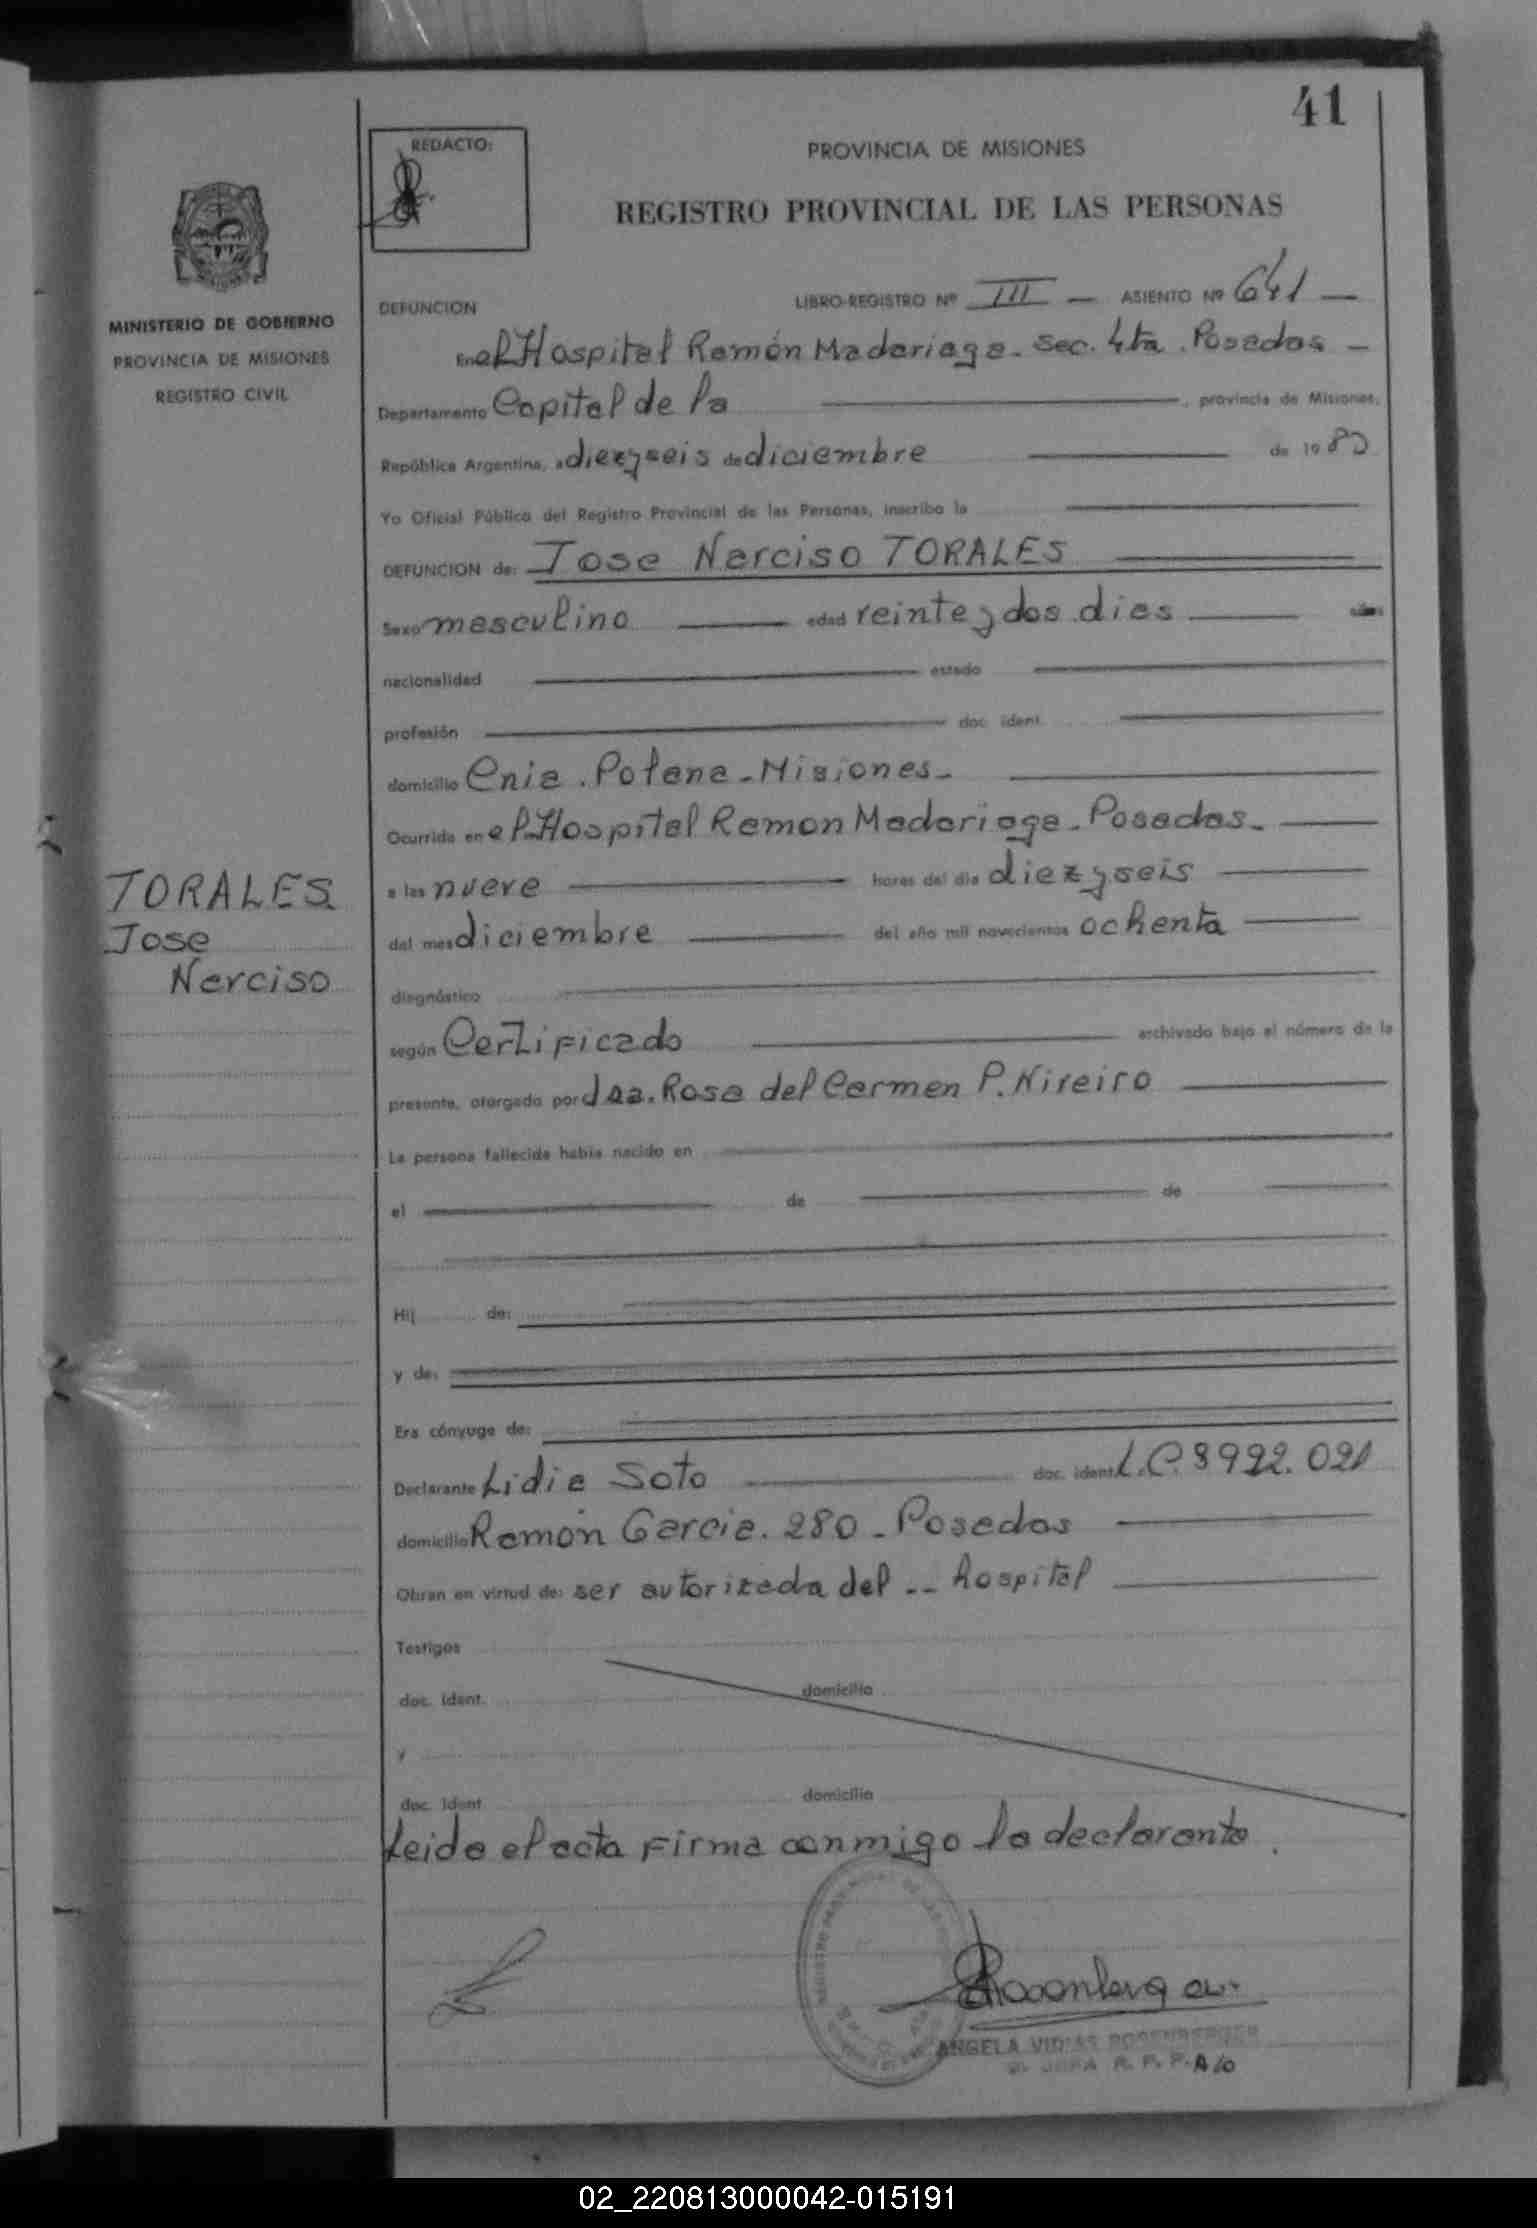 41
REDACTO:
PROVINCIA DE MISIONES
REGISTRO PROVINCIAL DE LAS PERSONAS
MINISTERIO DE GOBIERNO
PROVINCIA DE MISIONES
REGISTRO CIVIL
DEFUNCION LIBRO-REGISTRO Nº III — ASIENTO Nº 641 —
En el Hospital Ramón Madariaga. Sec. 4ta. Posadas —
Departamento Capital de la , provincia de Misiones,
República Argentina, a diezyseis de diciembre de 1980
Yo Oficial Público del Registro Provincial de las Personas, inscribo la
DEFUNCION de: Jose Narciso TORALES
Sexo masculino edad veinte y dos dias
nacionalidad estado
profesión doc. ident.
domicilio Cnia. Polana - Misiones -
Ocurrida en el Hospital Ramon Madariaga - Posadas -
a las nueve horas del día diez y seis
del mes diciembre del año mil novecientos ochenta
TORALES
Jose
Narciso
diagnóstico
según Certificado archivado bajo el número de la
presente, otorgado por dra. Rosa del Carmen P. Nireiro
La persona fallecida había nacido en
el de de
Hij de:
y de:
Era cónyuge de:
Declarante Lidia Soto doc. ident. L.C. 3992.021
domicilio Ramón Garcia. 280 - Posadas
Obran en virtud de: ser autorizada del -- hospital
Testigos
doc. ident. domicilio
y
doc. ident. domicilio
Leida el acta firma conmigo la declarante.
ANGELA VIDIAS ROSENBERGER
JEFA R. P. P. A/c
02_220813000042-015191